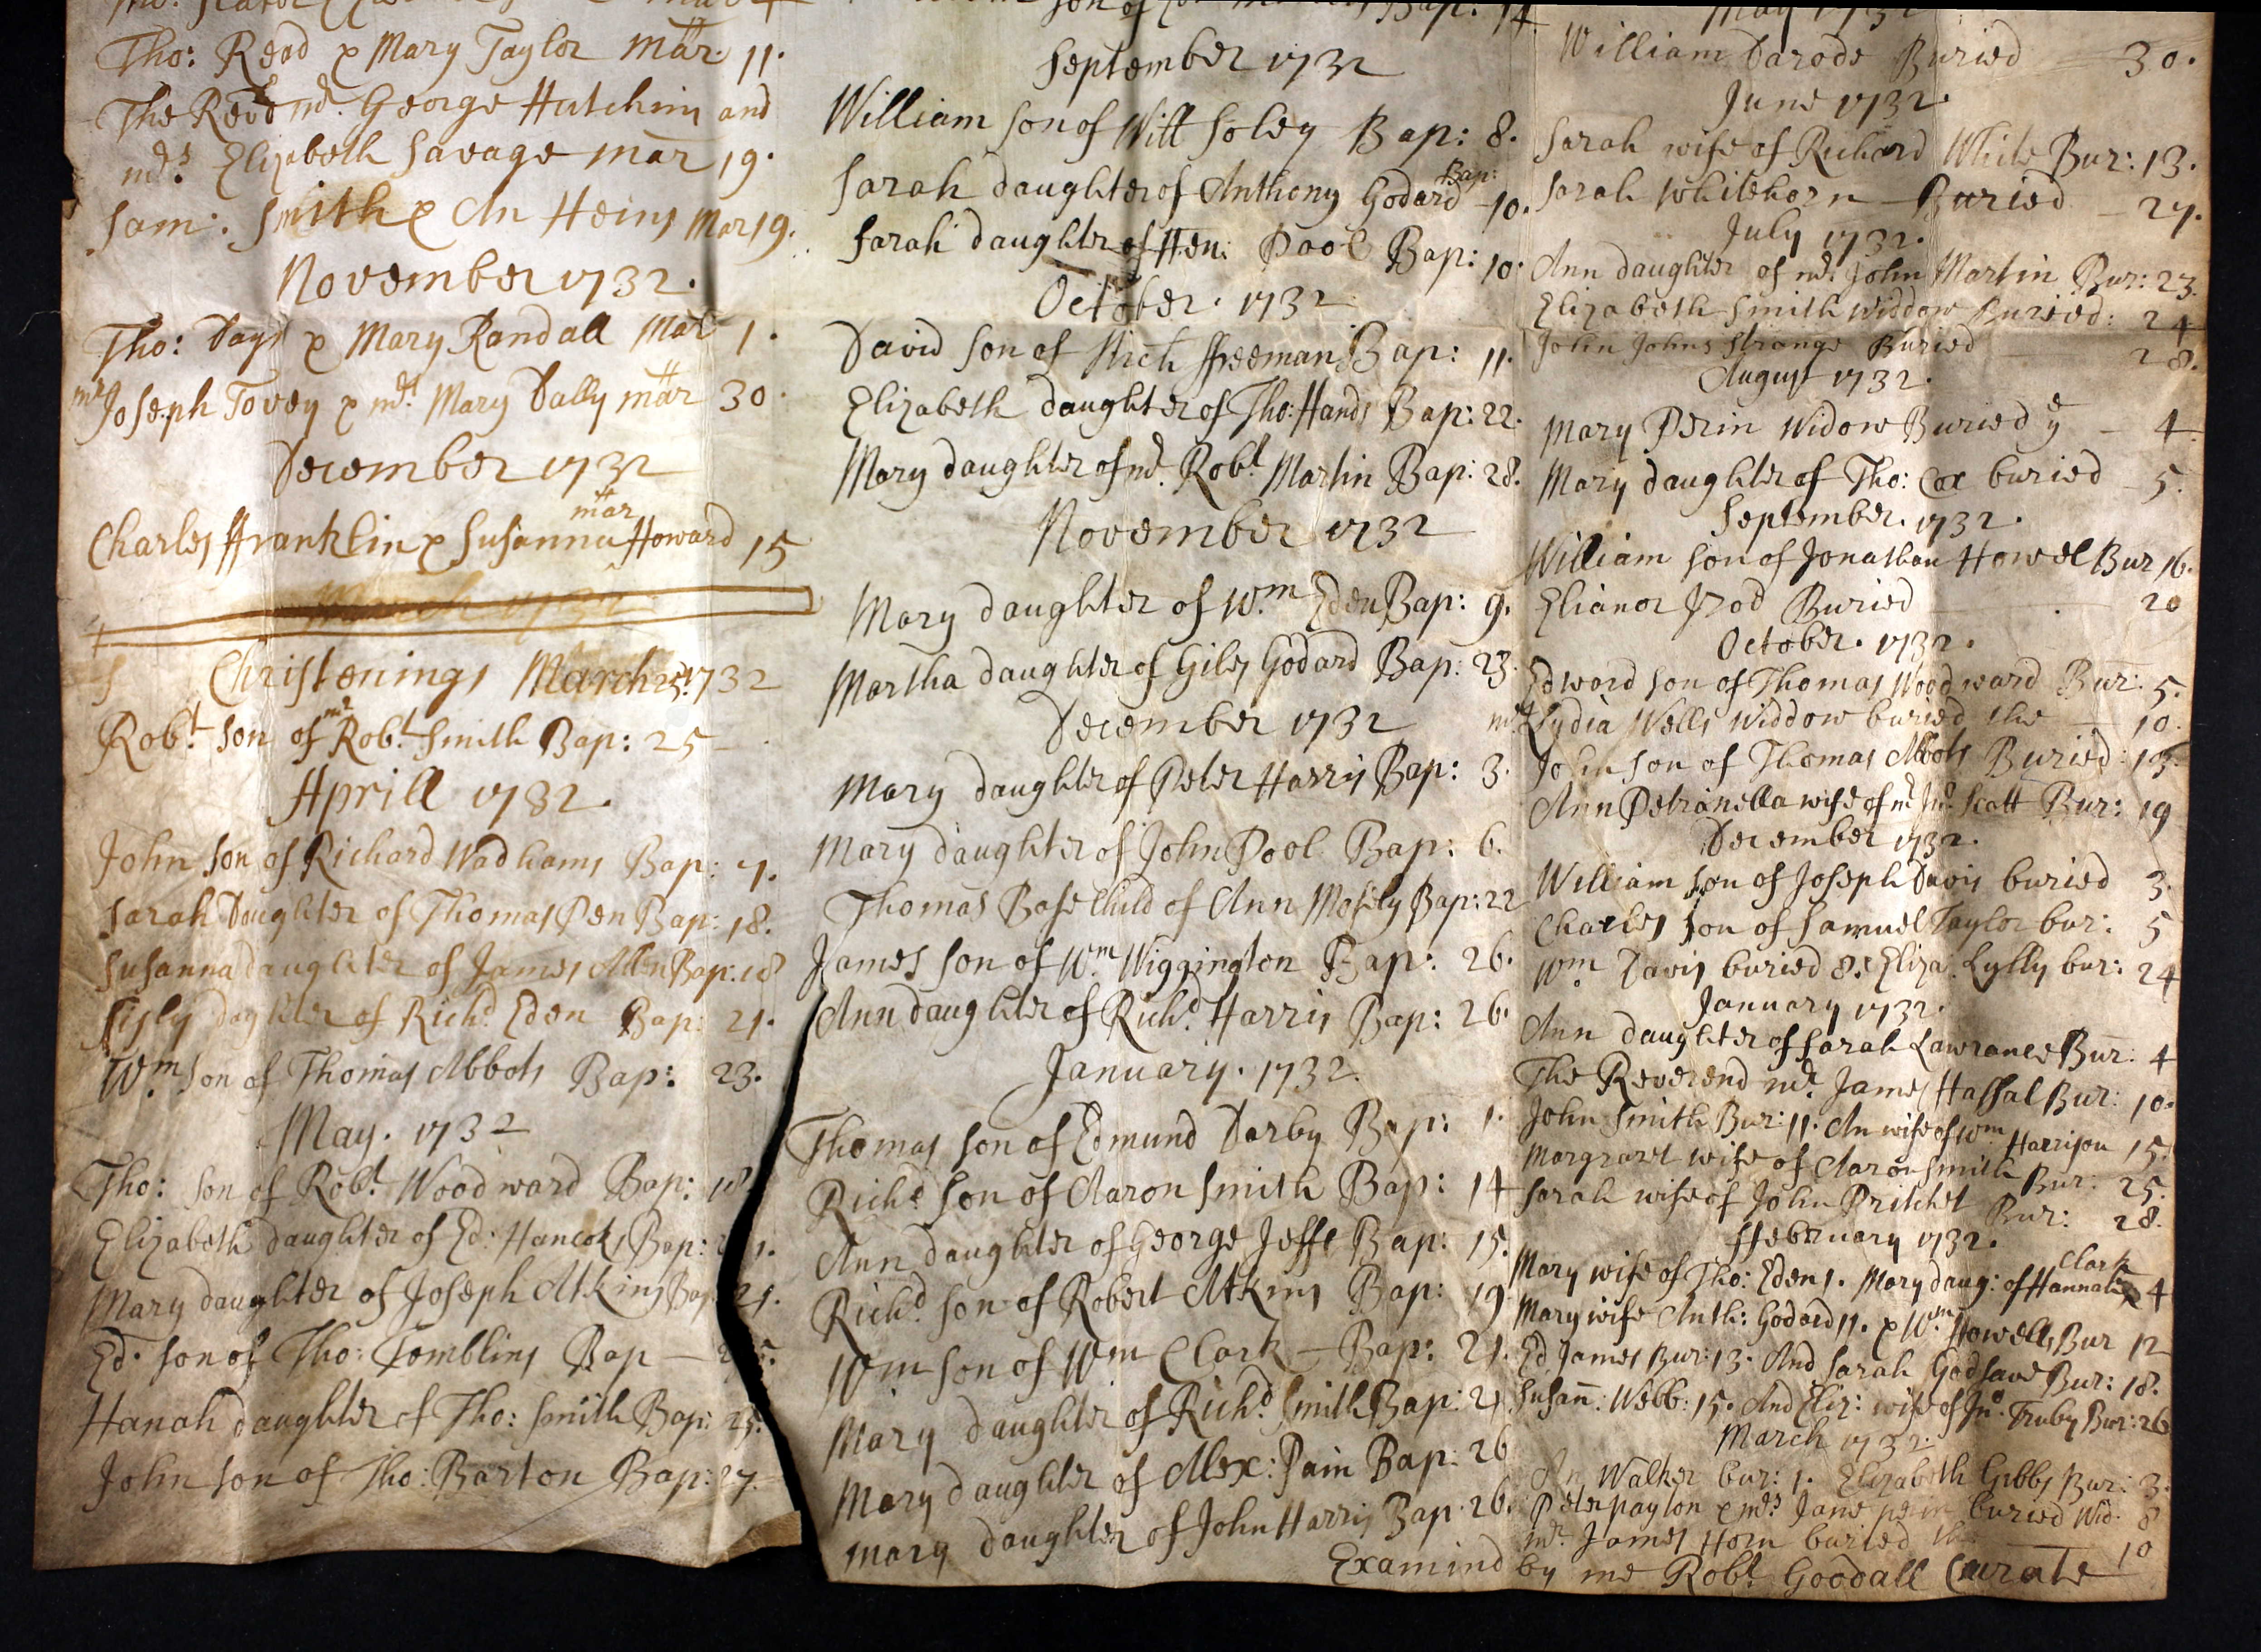 Tho: Read & Mary Taylor mar 11.
The Revd mr. George Hutchins and
mrs Elizabeth Savage mar 19.
Sam: Smith & An Heins Mar 19.
November 1732.
Tho: Days & Mary Randall Mar 1.
mr Joseph Tovey & mrs Mary Dally mar 30.
December 1732
mar
Charles ffranklin & Susanna Howard 15
March 1732
Christenings March 25 1732
Robt. son of mr Robt. Smith Bap: 25
Aprill 1732.
John son of Richard Wadhams Bap: 7.
Sarah Daughter of Thomas Pen Bap: 18.
Susanna daughter of James Allen Bap: 18
Sisly daghter of Richd. Eden Bap: 21.
Wm. son of Thomas Abbots Bap: 23.
May. 1732
Tho: son of Robt. Woodward Bap: 18.
Elizabeth daughter of Ed: Hancoks Bap: 21.
Mary daughter of Joseph Atkins Bap 21.
Ed. son of Tho: Tomblins Bap
Hanah daughter of Tho: Smith Bap: 25.
John son of Tho: Barton Bap: 27.
Bap: 14
September 1732
William son of Will Soley Bap: 8.
Bap:
Sarah daughter of Anthony Godard 10.
Sarah daughter of Hen: Pool Bap: 10.
October. 1732
David son of Rich ffreeman Bap: 11.
Elizabeth daughter of Tho: Hands Bap: 22.
Mary daughter of mr. Robt. Martin Bap: 28.
November 1732
Mary daughter of Wm. Eden Bap: 9.
Martha daughter of Giles Godard Bap: 23.
December 1732
Mary daughter of Peter Harris Bap: 3.
Mary daughter of John Pool Bap: 6.
Thomas Base Child of Ann Mosely Bap: 22
James son of Wm. Wiggington Bap: 26.
Ann daughter of Richd. Harris Bap: 26.
January. 1732.
Thomas son of Edmund Darby Bap: 1.
Richd. son of Aaron Smith Bap: 14
Ann daughter of George Jeffs Bap: 15.
Richd. son of Robert Atkins Bap: 19.
Wm son of Wm Clark Bap: 21.
Mary daughter of Richd. Smith Bap: 21
Mary daughter of Alex: Pain Bap: 26
Mary daughter of John Harris Bap. 26.
May 1732
William Darode Buried 30.
June 1732.
Sarah wife of Richard White Bur: 13.
Sarah Whitehorn Buried 27.
July 1732.
Ann daughter of mr. John Martin Bur: 23.
Elizabeth Smith widdow Buried: 24
John Johns Strange Buried 28.
August 1732.
Mary Perin Widow Buried ye 4
Mary daughter of Tho: Cox buried 5.
September. 1732.
William son of Jonathan Howel Bur 16.
Elianor Izod Buried 20
October. 1732.
Edward son of Thomas Woodward Bur: 5.
mrs Lydia Wells Widdow buried the 10.
John son of Thomas Abbots Buried: 13.
Ann Petranella wife of mr. Jno. Scott Bur: 19
December 1732.
William son of Joseph Davis buried 3.
Charles son of Samuel Taylor bur: 5
Wm. Davis buried 8. & Eliza. Lylly bur: 24
January 1732.
Ann daughter of Sarah Lawrance Bur: 4
The Reverend mr. James Hassal Bur: 10.
John Smith Bur: 11. An wife of Wm Harrison 15.
Margraret wife of Aaron Smith Bur: 25.
Sarah wife of John Pritchet Bur: 28.
ffebruary 1732.
Clark
Mary wife of Tho: Eden 1. Mary daug: of Hannah 4
Mary wife Anth: Godard 11. & Wm. Howells Bur 12
Ed James Bur: 13. And Sarah Godsave Bur: 18.
Susan: Webb: 15. And Eliz: wife of Jno. Truby Bur: 26
March 1732.
An Walker bur: 1. Elizabeth Gibbs Bur: 3.
Peter payton & mrs Jane buried Wid. 8
mr. James Horn buried 10
Examind by me Robt. Goodall Curate